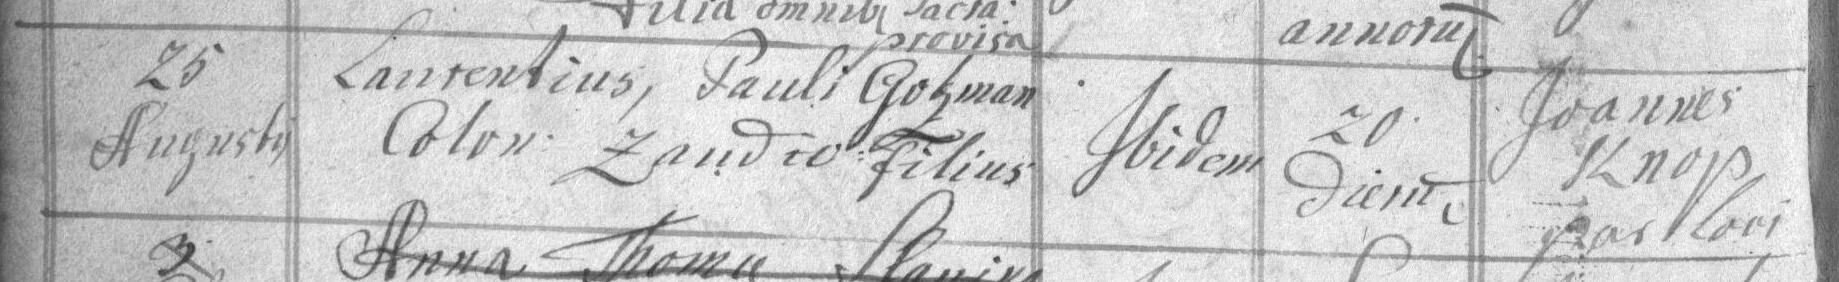 Filia omnibq Sacra:
provisa
annoru
25
Augusti
Laurentius, Pauli Gotzman
Colon: Zandro: Filius
Ibidem
20.
Dierum
Joannes
Knop
par Loci
Anna Thomæ